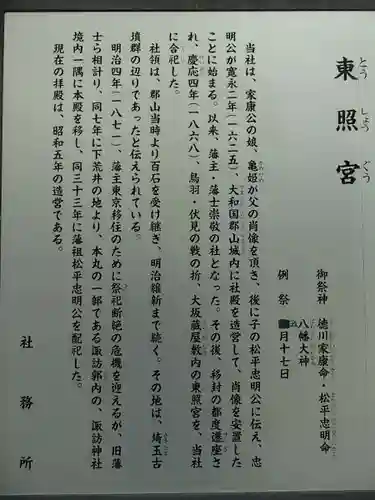 東照宮
とう しょう ぐう
御祭神 徳川家康命・松平忠明命
八幡大神
例祭 月十七日
当社は、家康公の娘、亀姫が父の肖像を頂き、後に子の松平忠明公に伝え、忠
明公が寛永二年(一六二五)、大和国郡山城内に社殿を造営して、肖像を安置した
ことに始まる。以来、藩主・藩士崇敬の社となった。その後、移封の都度遷座さ
れ、慶応四年(一八六八)、鳥羽・伏見の戦の折、大坂蔵屋敷内の東照宮を、当社
に合祀した。
社領は、郡山当時より百石を受け継ぎ、明治維新まで続く。その地は、埼玉古
墳群の辺りであったと伝えられている。
明治四年(一八七一)、藩主東京移住のために祭祀断絶の危機を迎えるが、旧藩
士ら相計り、同七年に下荒井の地より、本丸の一郭である諏訪郭内の、諏訪神社
境内一隅に本殿を移し、同三十三年に藩祖松平忠明公を配祀した。
現在の拝殿は、昭和五年の造営である。
社務所